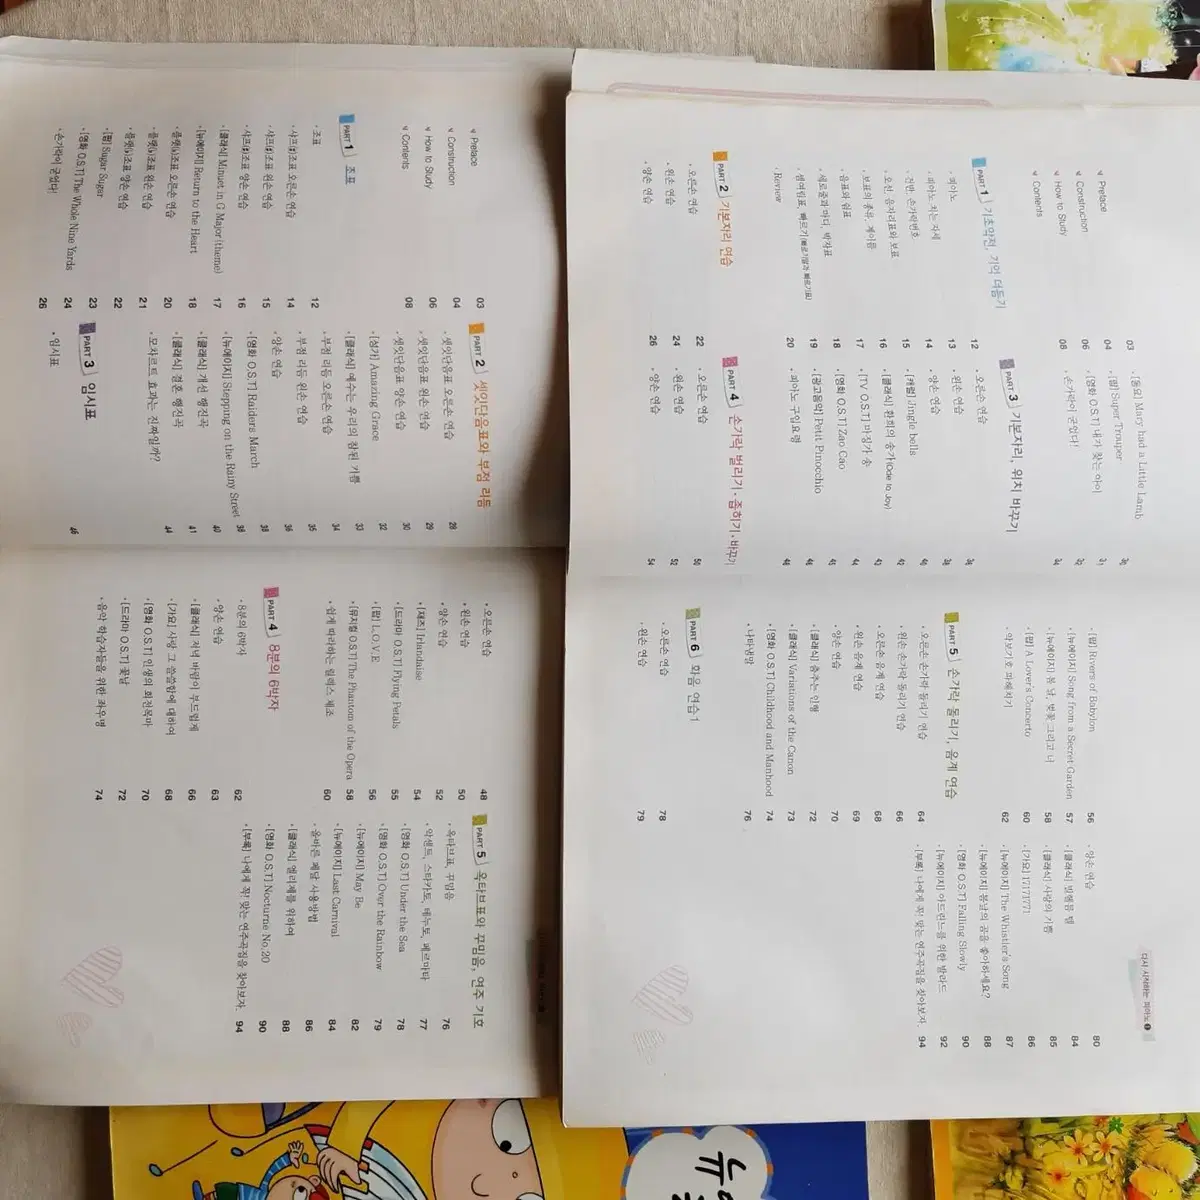 다시 시작하는 피아노 1
Preface 03
Construction 04
How to Study 06
Contents 08
PART 1 기초악전, 기억 더듬기
• 피아노 12
• 피아노 치는 자세 13
• 건반, 손가락번호 14
• 오선, 음자리표와 보표 15
• 보표의 종류, 계이름 16
• 음표와 쉼표 17
• 세로줄과 마디, 박자표 18
• 셈여림표, 빠르기(빠르기말과 빠르기표) 19
Review 20
PART 2 기본자리 연습
• 오른손 연습 22
• 왼손 연습 24
• 양손 연습 26
• [동요] Mary had a Little Lamb
• [팝] Super Trouper
• [영화 O.S.T] 내가 찾는 아이
• 손가락이 굳었다!
PART 3 기본자리, 위치 바꾸기
• 오른손 연습
• 왼손 연습
• 양손 연습
• [캐럴] Jingle bells
• [클래식] 환희의 송가(Ode to Joy)
• [TV O.S.T] 마징가 송
• [영화 O.S.T] Zao Cao
• [광고음악] Petit Pinocchio
• 피아노 구입요령
PART 4 손가락 벌리기·좁히기·바꾸기
• 오른손 연습 50
• 왼손 연습 52
• 양손 연습 54
• [팝] Rivers of Babylon 56
• [뉴에이지] Song from a Secret Garden 57
• [뉴에이지] 봄 날, 벚꽃 그리고 너 58
• [팝] A Lover's Concerto 60
• 악보기호 파헤치기 62
PART 5 손가락 돌리기, 음계 연습
• 오른손 손가락 돌리기 연습 64
• 왼손 손가락 돌리기 연습 66
• 오른손 음계 연습 68
• 왼손 음계 연습 69
• 양손 연습 70
• [클래식] 춤추는 인형 72
• [클래식] Variations of the Canon 73
• [영화 O.S.T] Childhood and Manhood 74
• 나타냄말 76
PART 6 화음 연습 1
• 오른손 연습 78
• 왼손 연습 79
• 양손 연습 80
• [클래식] 빌헬름 텔 84
• [클래식] 사랑의 기쁨 85
• [가요] 86
• [뉴에이지] The Whistler's Song 87
• [뉴에이지] 봄날의 곰을 좋아하세요? 88
• [영화 O.S.T] Falling Slowly 90
• [뉴에이지] 아드린느를 위한 발라드 92
• [부록] 나에게 꼭! 맞는 연주곡집을 찾아보자. 94
Preface 03
Construction 04
How to Study 06
Contents 08
PART 1 조표
• 조표 12
• 샤프(♯)조표 오른손 연습 14
• 샤프(♯)조표 왼손 연습 15
• 샤프(♯)조표 양손 연습 16
• [클래식] Minuet in G Major (theme) 17
• [뉴에이지] Return to the Heart 18
• 플랫(♭)조표 오른손 연습 20
• 플랫(♭)조표 왼손 연습 21
• 플랫(♭)조표 양손 연습 22
• [팝] Sugar Sugar 23
• [영화 O.S.T] The Whole Nine Yards 24
• 손가락이 굳었다! 26
PART 2 셋잇단음표와 부점 리듬
• 셋잇단음표 오른손 연습 28
• 셋잇단음표 왼손 연습 29
• 셋잇단음표 양손 연습 30
• [성가] Amazing Grace 32
• [클래식] 예수는 우리의 참된 기쁨 33
• 부점 리듬 오른손 연습 34
• 부점 리듬 왼손 연습 35
• 양손 연습 36
• [영화 O.S.T] Raiders March 38
• [뉴에이지] Stepping on the Rainy Street
• [클래식] 개선 행진곡
• [클래식] 결혼 행진곡
• 모차르트 효과는 진짜일까? 44
PART 3 임시표
• 임시표 46
• 오른손 연습 48
• 왼손 연습 50
• 양손 연습 52
• [재즈] Irlandaise 54
• [드라마 O.S.T] Flying Petals 55
• [팝] L.O.V.E 56
• [뮤지컬 O.S.T] The Phantom of the Opera 58
• 쉽게 따라하는 릴랙스 체조 60
PART 4 8분의 6박자
• 8분의 6박자 62
• 양손 연습 63
• [클래식] 저녁 바람이 부드럽게 66
• [가요] 사랑 그 쓸쓸함에 대하여 68
• [영화 O.S.T] 인생의 회전목마 70
• [드라마 O.S.T] 꽃날 72
• 음악 학습자들을 위한 좌우명 74
PART 5 옥타브표와 꾸밈음, 연주 기호
• 옥타브표, 꾸밈음 76
• 악센트, 스타카토, 테누토, 페르마타 77
• [영화 O.S.T] Under the Sea 78
• [영화 O.S.T] Over the Rainbow 79
• [뉴에이지] May Be 82
• [뉴에이지] Last Carnival 84
• 올바른 페달 사용방법 86
• [클래식] 엘리제를 위하여 88
• [영화 O.S.T] Nocturne No.20 90
• [부록] 나에게 꼭! 맞는 연주곡집을 찾아보자. 94